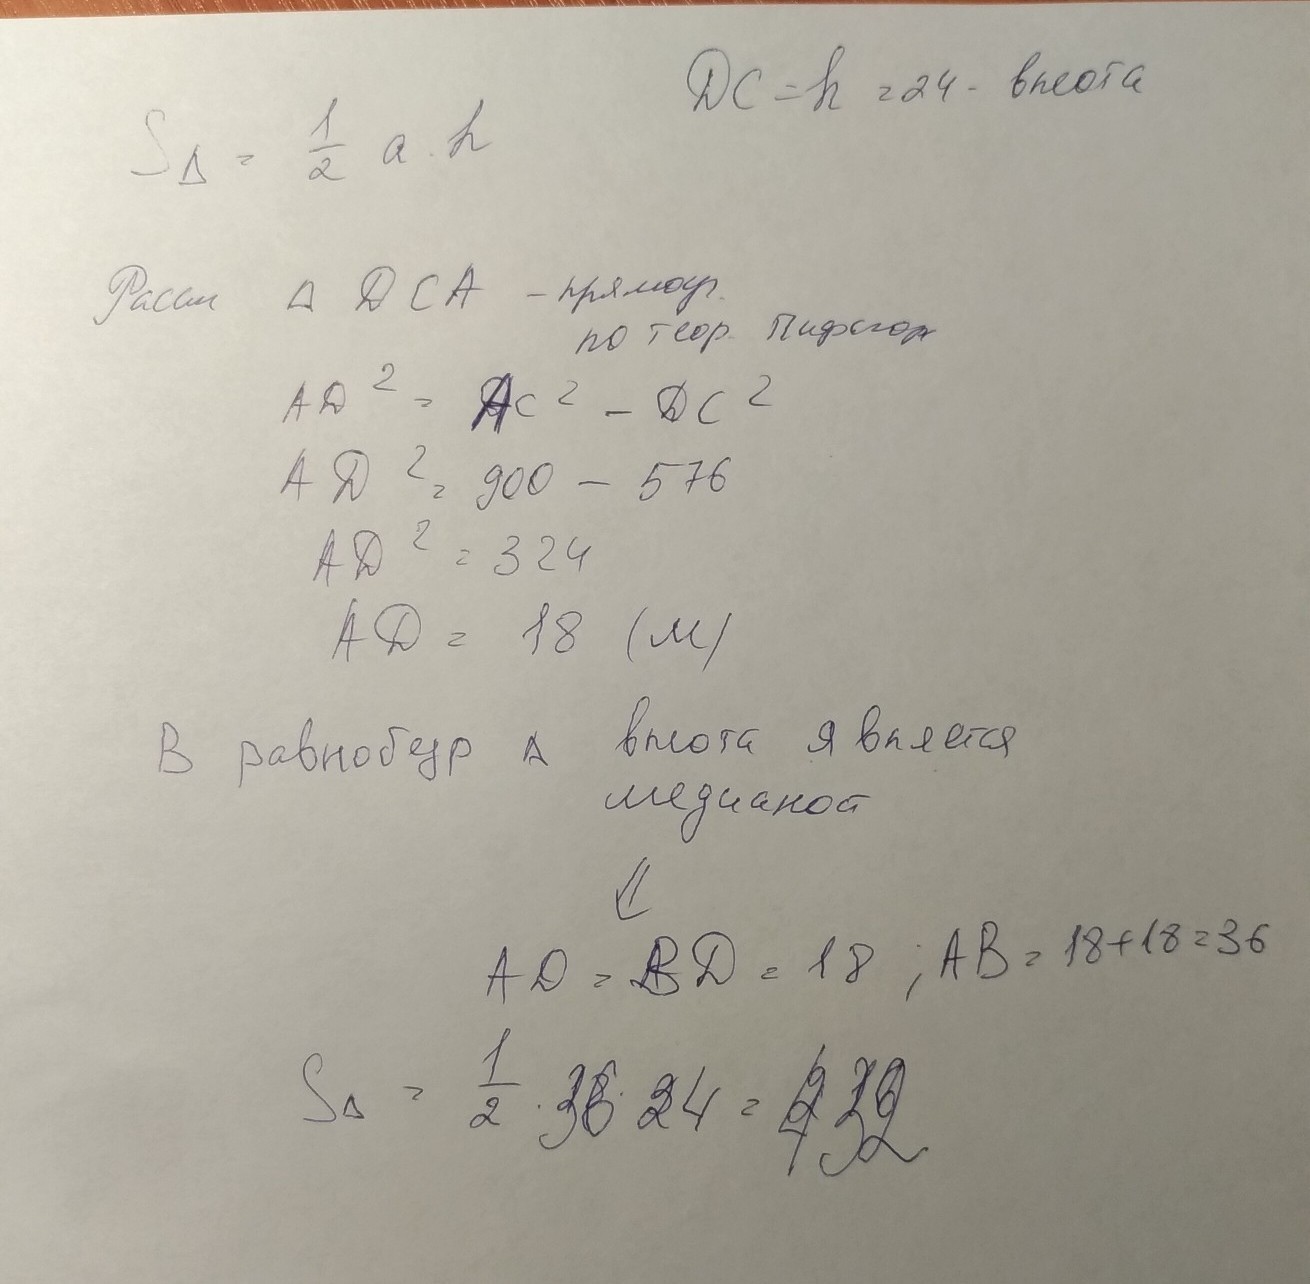 DC = h = 24 - высота
S∆ = 1/2 a · h
Рассм ∆ DCA - прямоуг.
по теор. Пифагор
AD² = AC² - DC²
AD² = 900 - 576
AD² = 324
AD = 18 (м)
В равнобедр ∆ высота является
медианой
⇓
AD = BD = 18 ; AB = 18+18=36
S∆ = 1/2 · 36 · 24 = 432